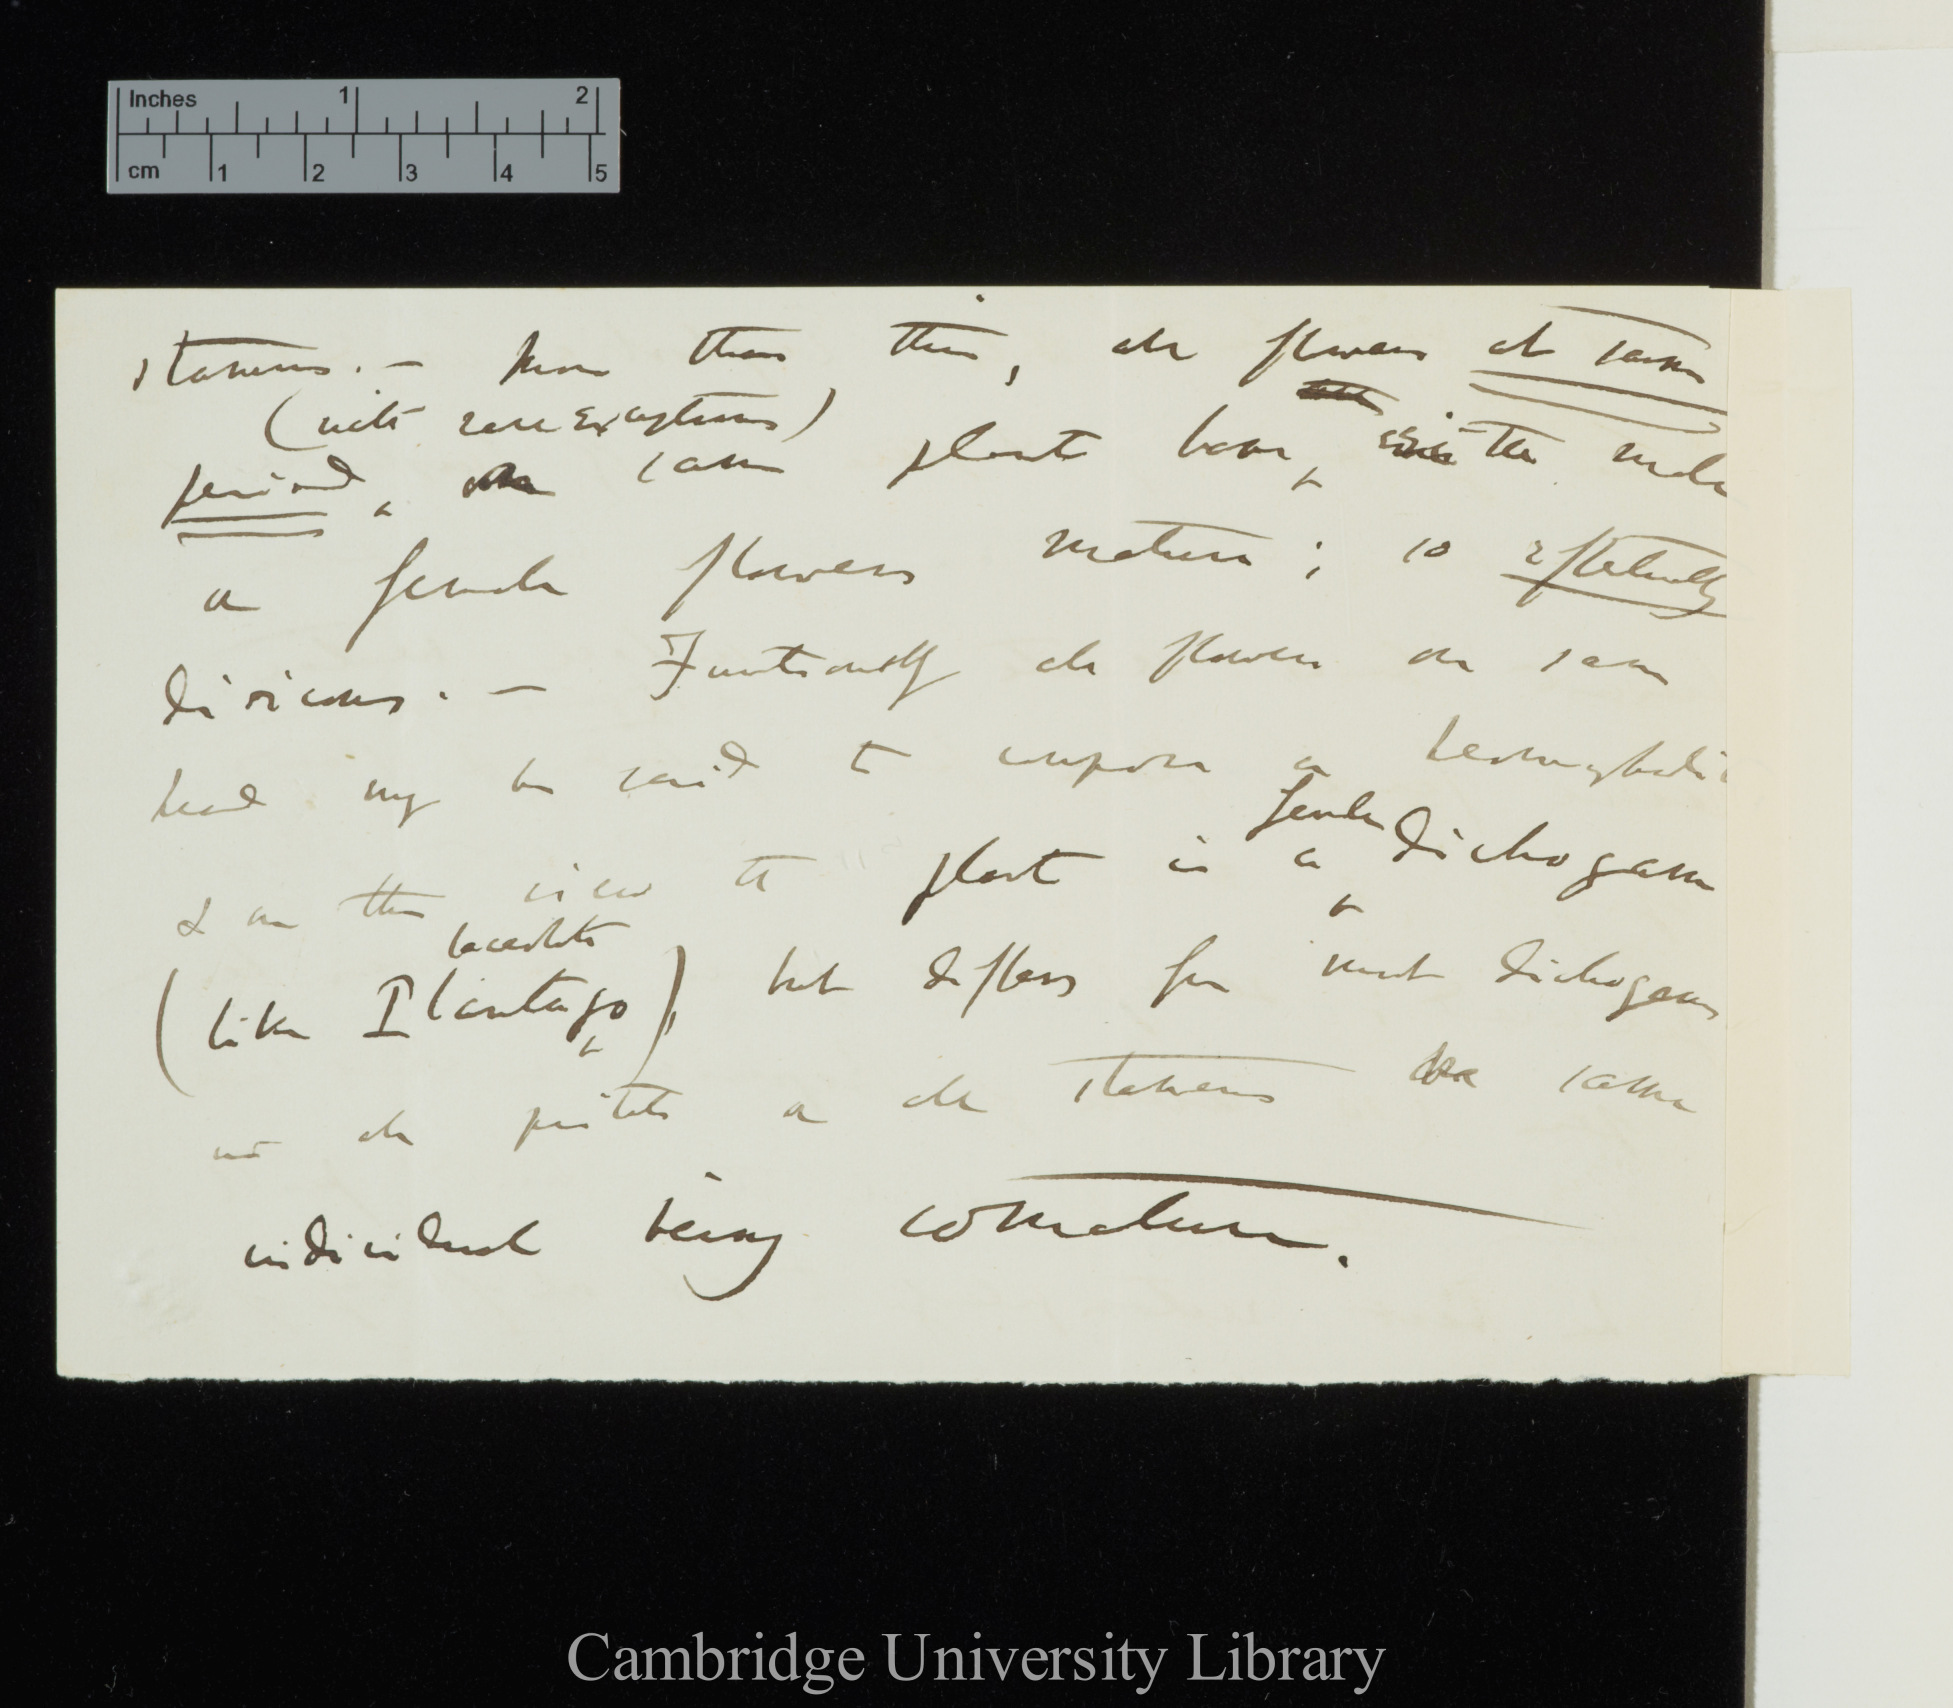 Inches 1 2
cm 1 2 3 4 5
stamens.— More than this, all flowers at same
(with rare exceptions)
period, on same plant have either male
or female flowers mature; so effectually
dioicous.— Functionally all flowers on same
head may be said to compose a hermaphrodite
female
& on this view the plant is a dichogam
lanceolata
(like Plantago), but differs from most dichogams
in all pistils or all stamens on same
individual being comature.
Cambridge University Library